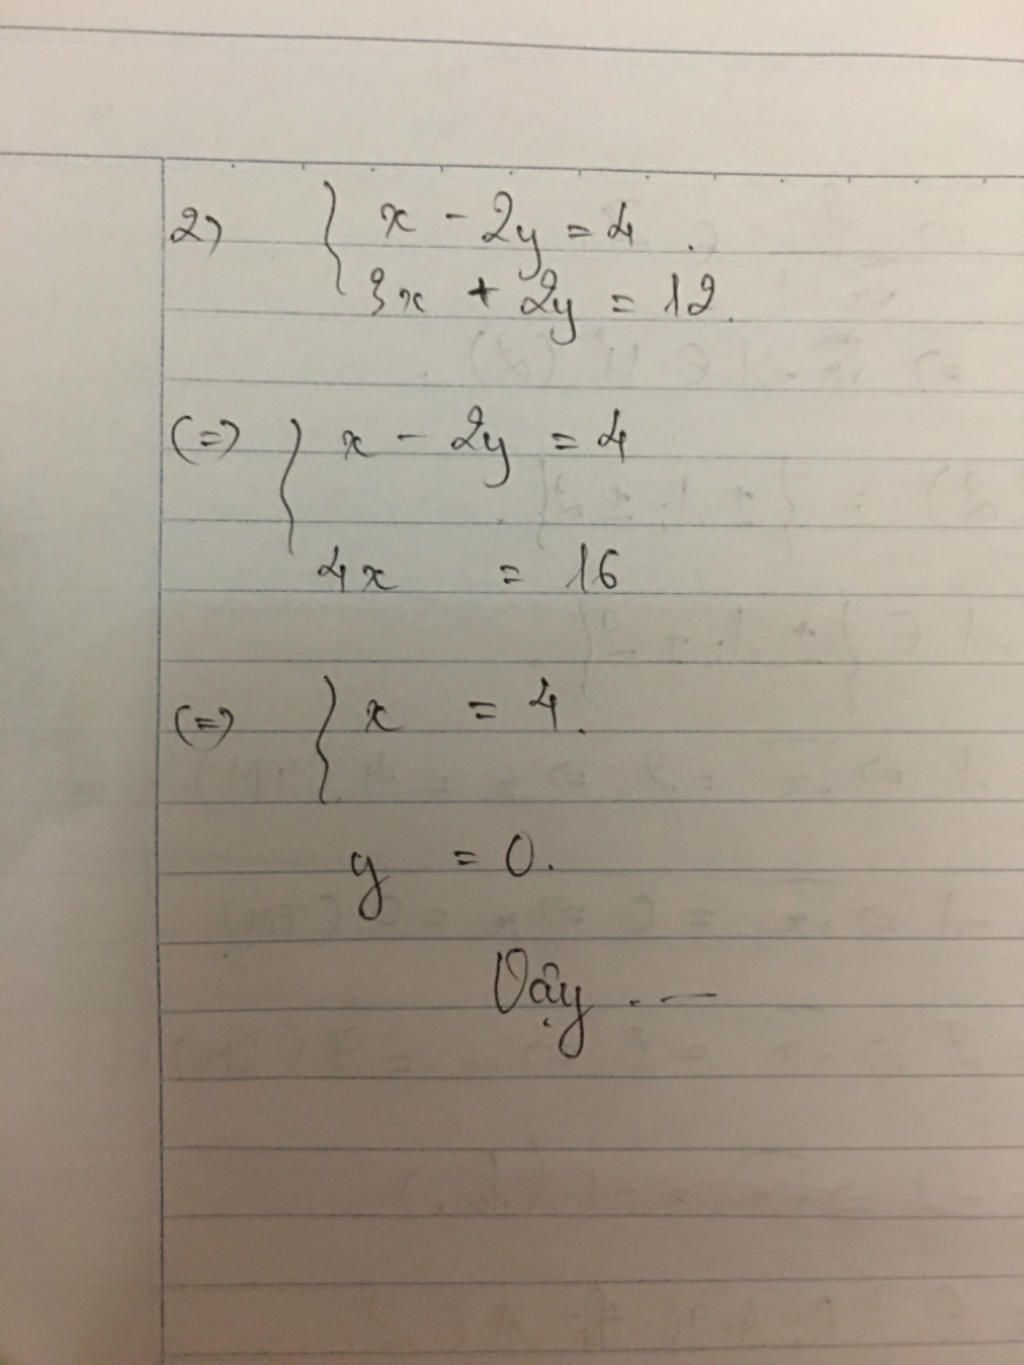 2) { x - 2y = 4.
3x + 2y = 12.
(=) { x - 2y = 4
4x = 16
(=) { x = 4.
y = 0.
Vậy . —